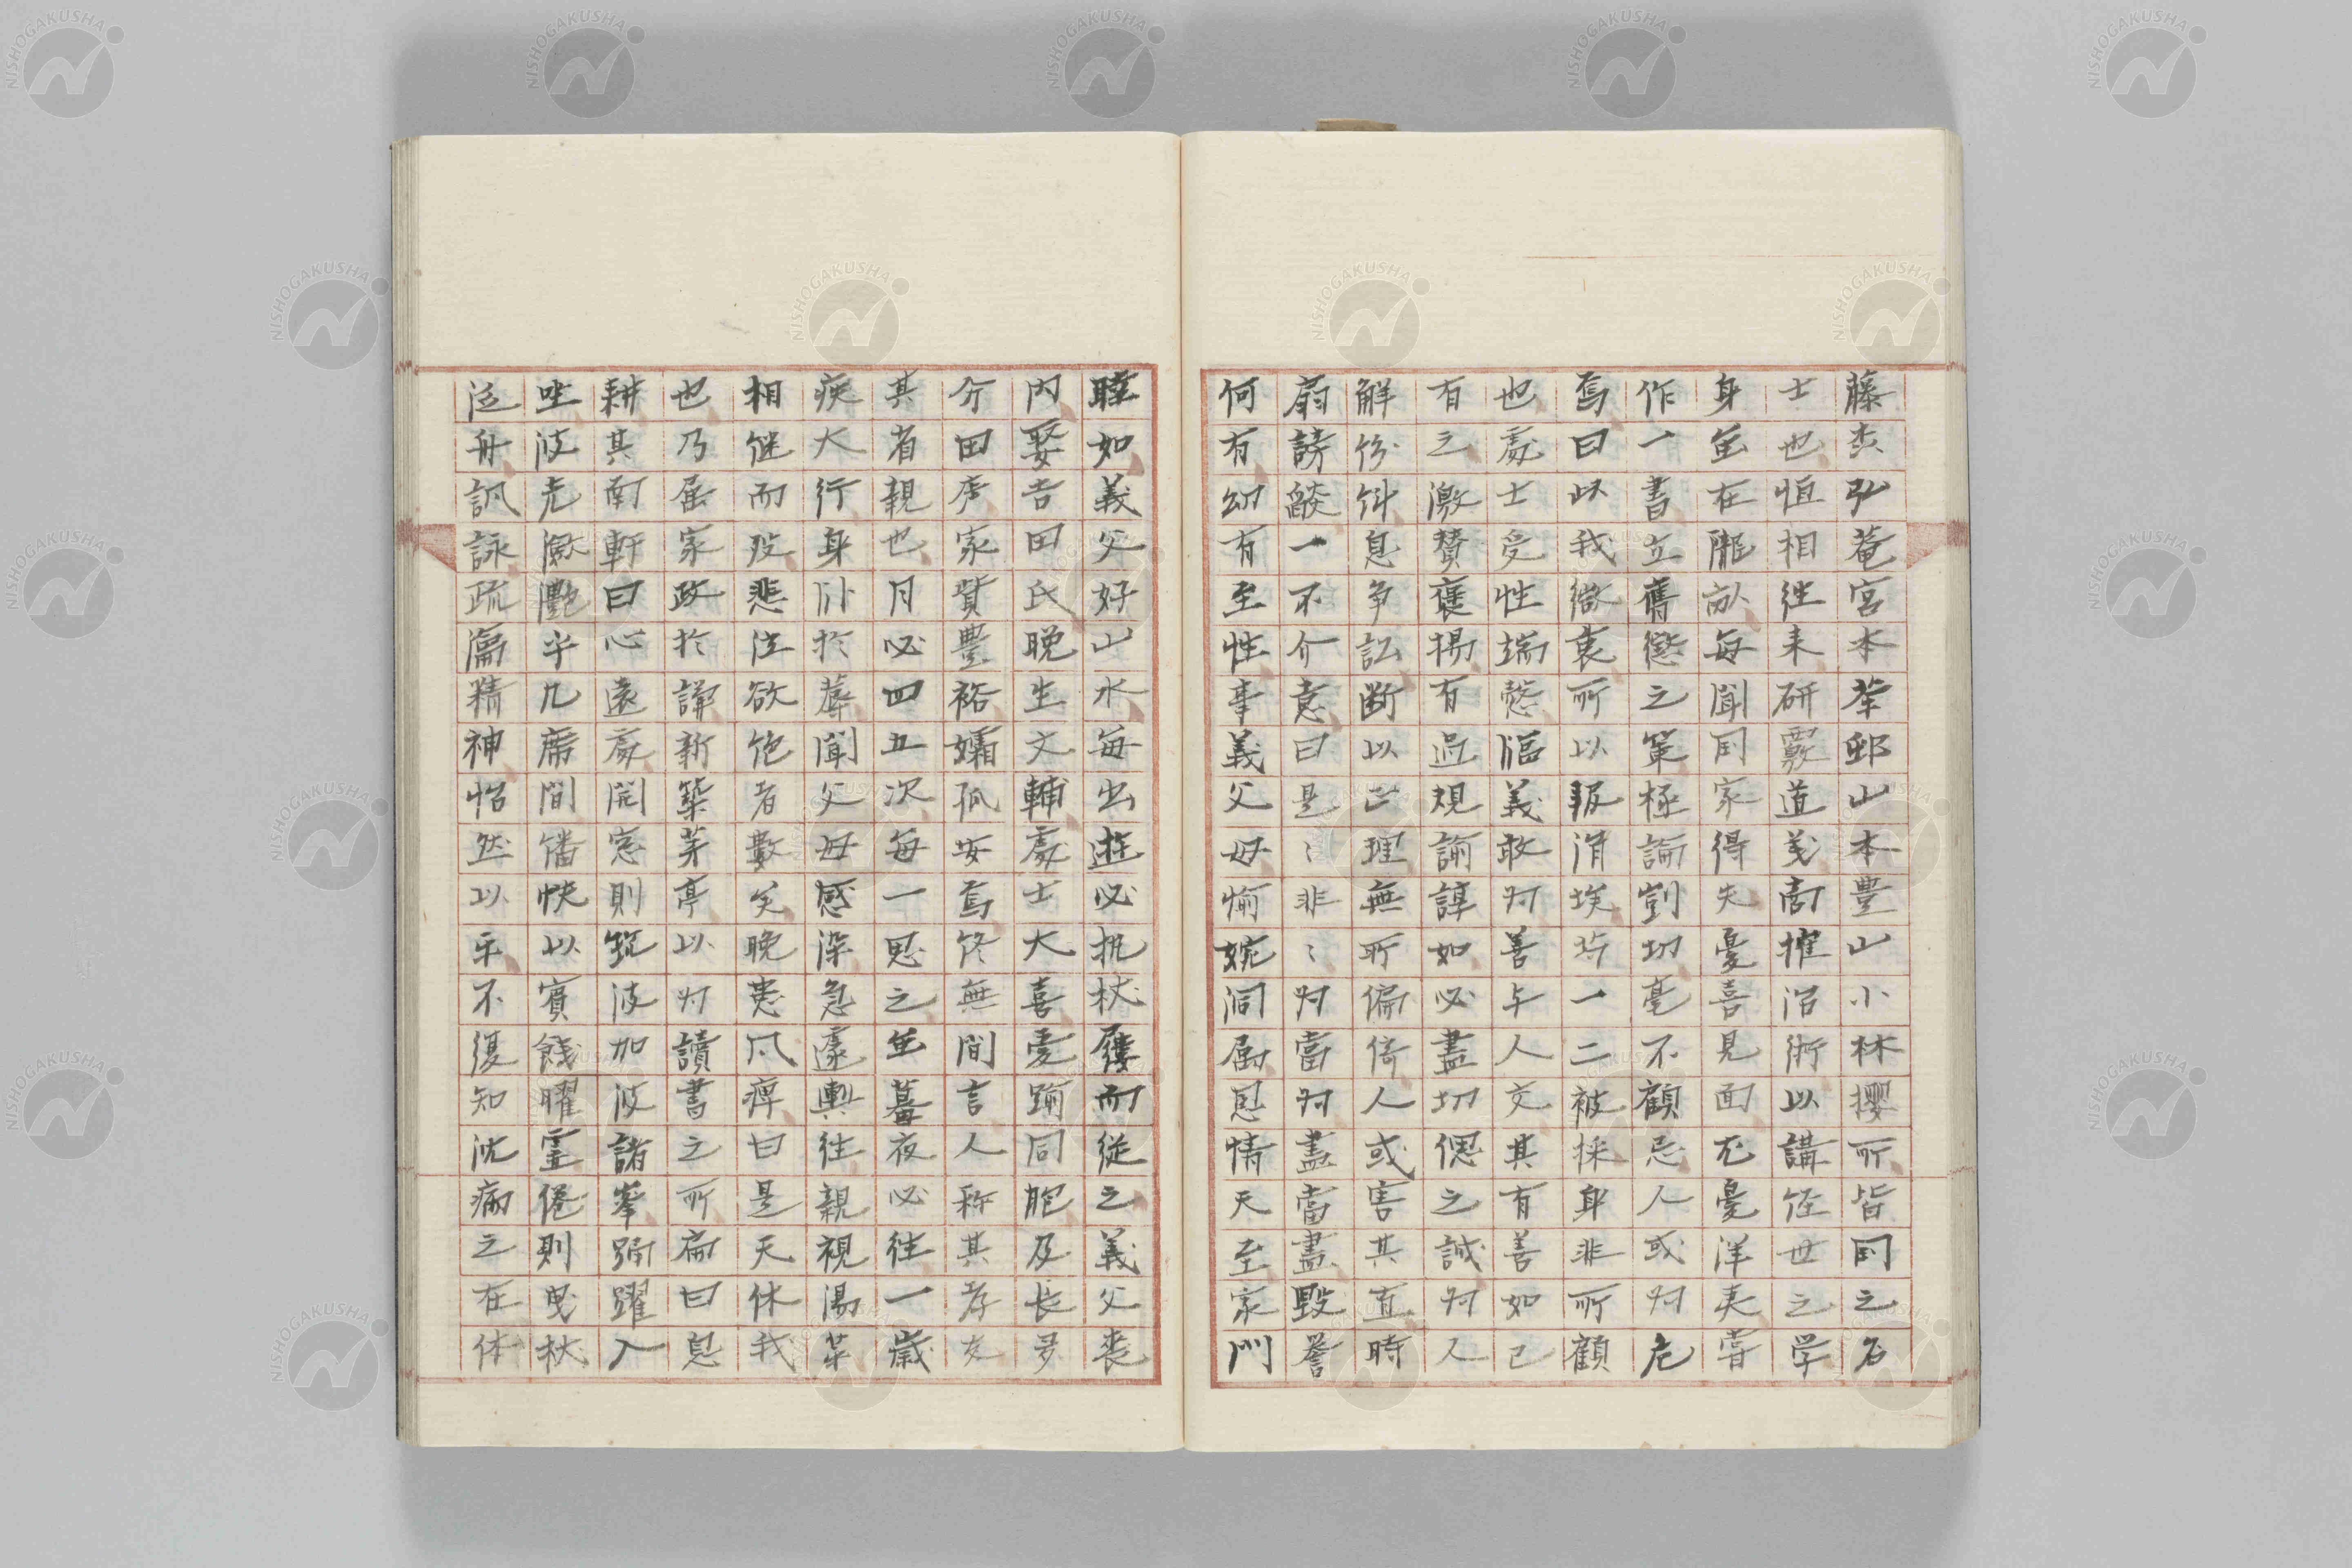 藤杰弘菴宮本荃邨山本豊山小林攖所皆国之名
士也恒相徃来研覈道義商搉沿術以講経世之学
身虽在隴畝毎聞国家得失憂喜見面尤憂洋夷嘗
作一書立膺懲之策極論剴切毫不顧忌人或為危
焉曰以我微衷所以報涓埃于一二被採身非所顧
也處士受性端愨循義敢為善与人交其有善如己
有之激賛襃揚有過規諭諄如必盡切偲之誠為人
解紛糾息争訟断以正理無所偏倚人或害其直時
扇謗讟一不介意曰是〻非〻為當為盡當盡毀誉
何有幼有至性事義父母愉婉洞属恩情天至家門
睦如義父好山水毎出遊必执杖屨而従之義父喪
内娶吉田氏晩生文輔處士大喜愛踰同胞及長夛
分田産家貲豊裕孀孤安焉終無間言人称其孝友
其省親也月必四五次毎一思之虽暮夜必徃一歳
疾大行身臥於蓐聞父母感染急遽輿往親視湯薬
相継而歿悲泣欲绝者數矣晩患风痹曰是天休我
也乃属家政於譁新築茅亭以為讀書之所扁曰息
耕其南軒曰心遠處開窓則筑波加波諸峯踴躍入
坐波光瀲灔乎几席間皤怏以賓餞曜霊倦則曳杖
泛舟諷詠疏瀹精神怡然以乐不復知沈痾之在体